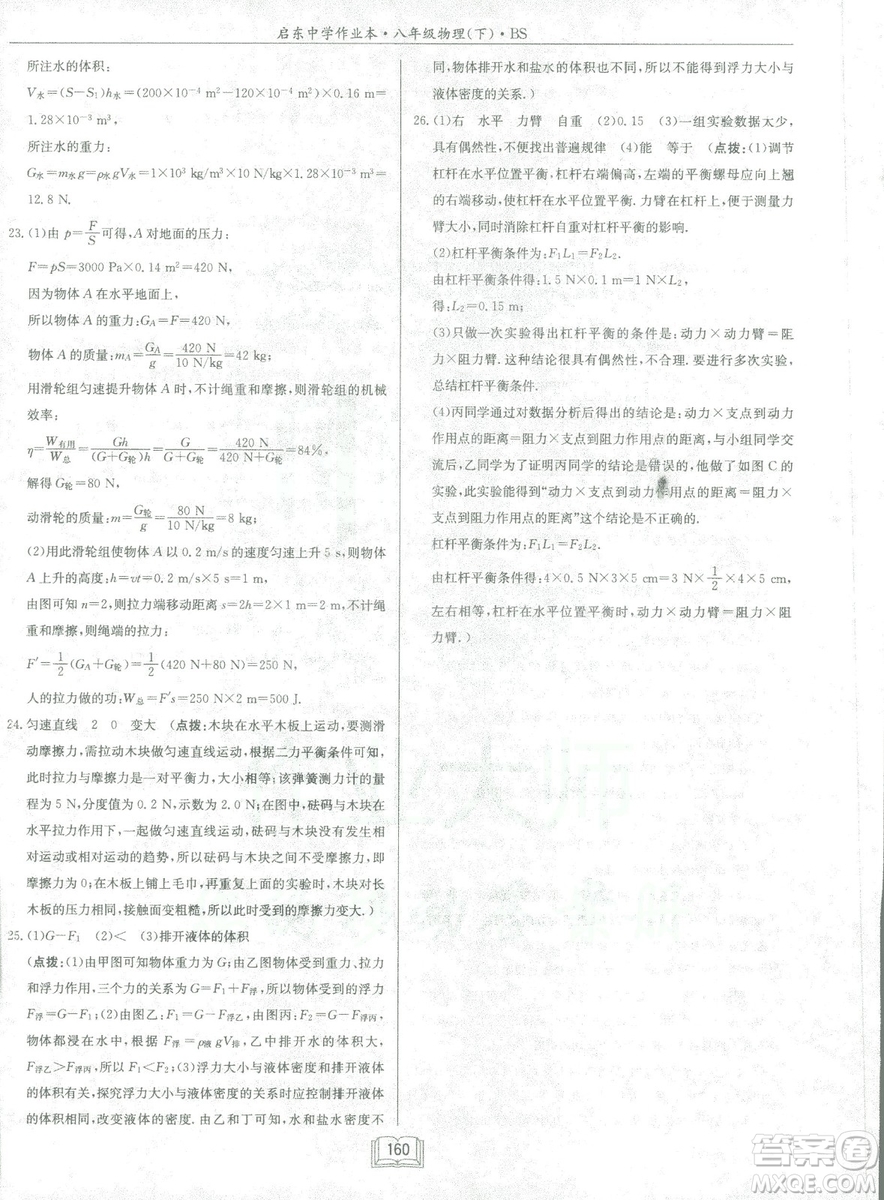 启东中学作业本·八年级物理(下)·BS
所注水的体积:
V水=(S−S₁)h水=(200×10⁻⁴ m²−120×10⁻⁴ m²)×0.16 m=
1.28×10⁻³ m³;
所注水的重力:
G水=m水g=ρ水gV水=1×10³ kg/m³×10 N/kg×1.28×10⁻³ m³=
12.8 N.
23.(1)由 p=F/S可得,A对地面的压力:
F=pS=3000 Pa×0.14 m²=420 N,
因为物体 A 在水平地面上,
所以物体 A 的重力:G_A=F=420 N,
物体 A 的质量:m_A=G_A/g=420 N/10 N/kg=42 kg;
用滑轮组匀速提升物体 A 时,不计绳重和摩擦,则滑轮组的机械
效率:
η=W有用/W总=Gh/(G+G轮)h=G/G+G轮=420 N/420 N+G轮=84%,
解得 G轮=80 N,
动滑轮的质量:m=G轮/g=80 N/10 N/kg=8 kg;
(2)用此滑轮组使物体 A 以 0.2 m/s 的速度匀速上升 5 s,则物体
A 上升的高度:h=vt=0.2 m/s×5 s=1 m,
由图可知 n=2,则拉力端移动距离 s=2h=2×1 m=2 m,不计绳
重和摩擦,则绳端的拉力:
F′=1/2(G_A+G轮)=1/2(420 N+80 N)=250 N,
人的拉力做的功:W总=F′s=250 N×2 m=500 J.
24.匀速直线 2 0 变大 (点拨:木块在水平木板上运动,要测滑
动摩擦力,需拉动木块做匀速直线运动,根据二力平衡条件可知,
此时拉力与摩擦力是一对平衡力,大小相等;该弹簧测力计的量
程为 5 N,分度值为 0.2 N,示数为 2.0 N;在图中,砝码与木块在
水平拉力作用下,一起做匀速直线运动,砝码与木块间没有相
对运动的趋势,所以砝码与木块之间不受摩擦力,即
摩擦力为 0;在木板上铺上毛巾,再重复上面的实验时,木块对长
木板的压力相同,接触面变粗糙,所以此时受到的摩擦力变大.)
25.(1)G−F₁ (2)< (3)排开液体的体积
(点拨:(1)由甲图可知物体重力为 G;由乙图物体受到重力、拉力
和浮力作用,三个力的关系为 G=F₁+F浮;所以物体受到的浮力
F浮=G−F₁;(2)由图乙:F浮=G−F₁,由图丙:F浮=G−F₂,
物体都浸没在水中,根据 F浮=ρ液gV排,乙中排开水的体积大,
F浮乙>F浮丙,所以 F₁<F₂;(3)浮力大小与液体密度和排开液体
的体积有关,探究浮力大小与液体密度的关系时应控制排开液体
的体积相同,改变液体的密度.由乙和丁可知,水和盐水密度不
同,物体排开水和盐水的体积也不同,所以不能得到浮力大小与
液体密度的关系.)
26.(1)右 水平 力臂 自重 (2)0.15 (3)一组实验数据太少,
具有偶然性,不便找出普遍规律 (4)能 等于 (点拨:(1)调节
杠杆在水平位置平衡,杠杆右端偏高,左端的平衡螺母应向上翘
的右端移动,使杠杆在水平位置平衡.杠杆上,便于测量力
臂大小,同时消除杠杆自重对杠杆平衡的影响.
(2)杠杆平衡条件为:F₁L₁=F₂L₂.
由杠杆平衡条件得:1.5 N×0.1 m=1 N×L₂,
得:L₂=0.15 m;
(3)只做一次实验得出杠杆平衡的条件是:动力×动力臂=阻
力×阻力臂.这种结论很具有偶然性,不合理.要进行多次实验,
总结杠杆平衡条件.
(4)丙同学通过对数据分析后得出的结论是:动力×支点到动力
作用点的距离=阻力×支点到阻力作用点的距离.与小组同学交
流后,乙同学为了证明丙同学的结论是错误的,他做了如图 C 的
实验,此实验能得到“动力×支点到动力作用点的距离=阻力×
支点到阻力作用点的距离”这个结论是不正确的.
杠杆平衡条件为:F₁L₁=F₂L₂.
由杠杆平衡条件得:4×0.5 N×3×5 cm=3 N×1/2×4×5 cm,
左右相等,杠杆在水平位置平衡时,动力×动力臂=阻力×阻
力臂.)
160
答案圈
MXQE.COM